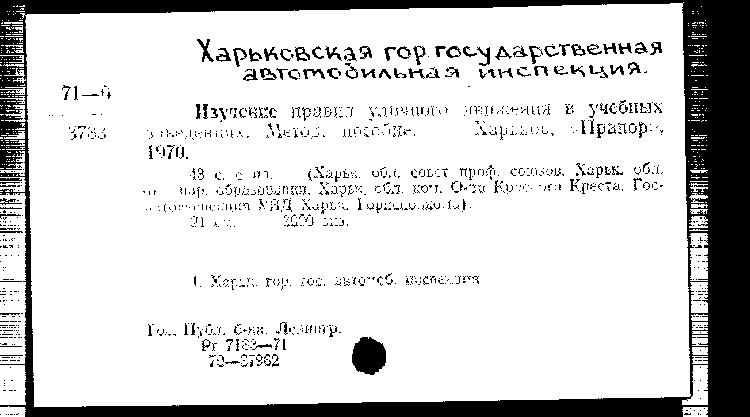 Харьковская гор. государственная
автомобильная инспекция.
71—6
3783
Изучение правил уличного движения в учебных
заведениях. Метод. пособие. Харьков, «Прапор»,
1970.
48 с. с ил. (Харьк. обл. совет проф. союзов. Харьк. обл.
нар. образования. Харьк. обл. ком. О-ва Красного Креста. Гос-
УВД Харьк. Горисполкома).
21 см. 2000 экз.
1. Харьк. гор. гос. автомоб. инспекция
Гос. Публ. б-ка. Ленингр.
Рг 7183—71